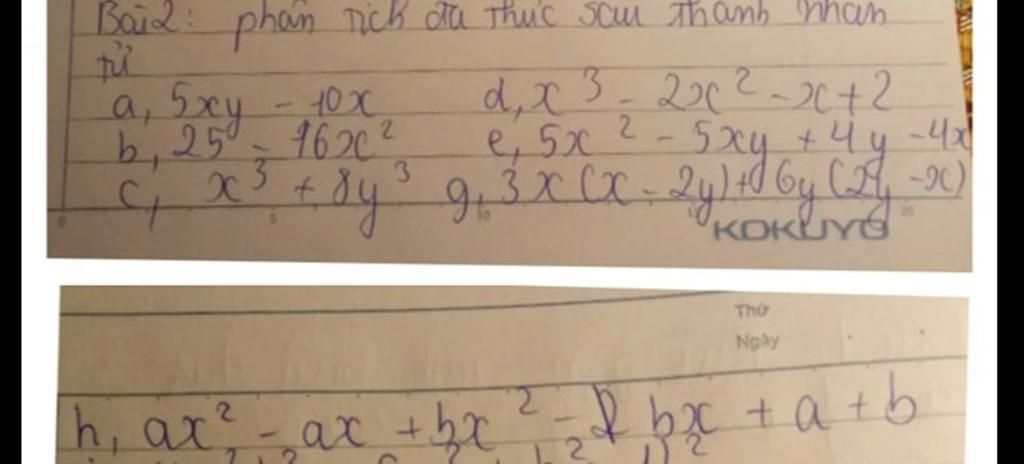 Bài 2: phân tích đa thức sau thành nhân
tử
a, 5xy - 10x d, x³ - 2x² - x + 2
b, 25 - 16x² e, 5x² - 5xy + 4y - 4x
c, x³ + 8y³ g, 3x(x - 2y) + 6y(2y - x)
0 5 10 15 20
KOKUYO
Thứ
Ngày
h, ax² - ax + bx² - bx + a + b